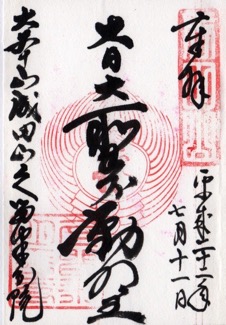 奉拝
平成二十二年
七月十一日
大日大聖不動明王
大本山成田山久留米分院